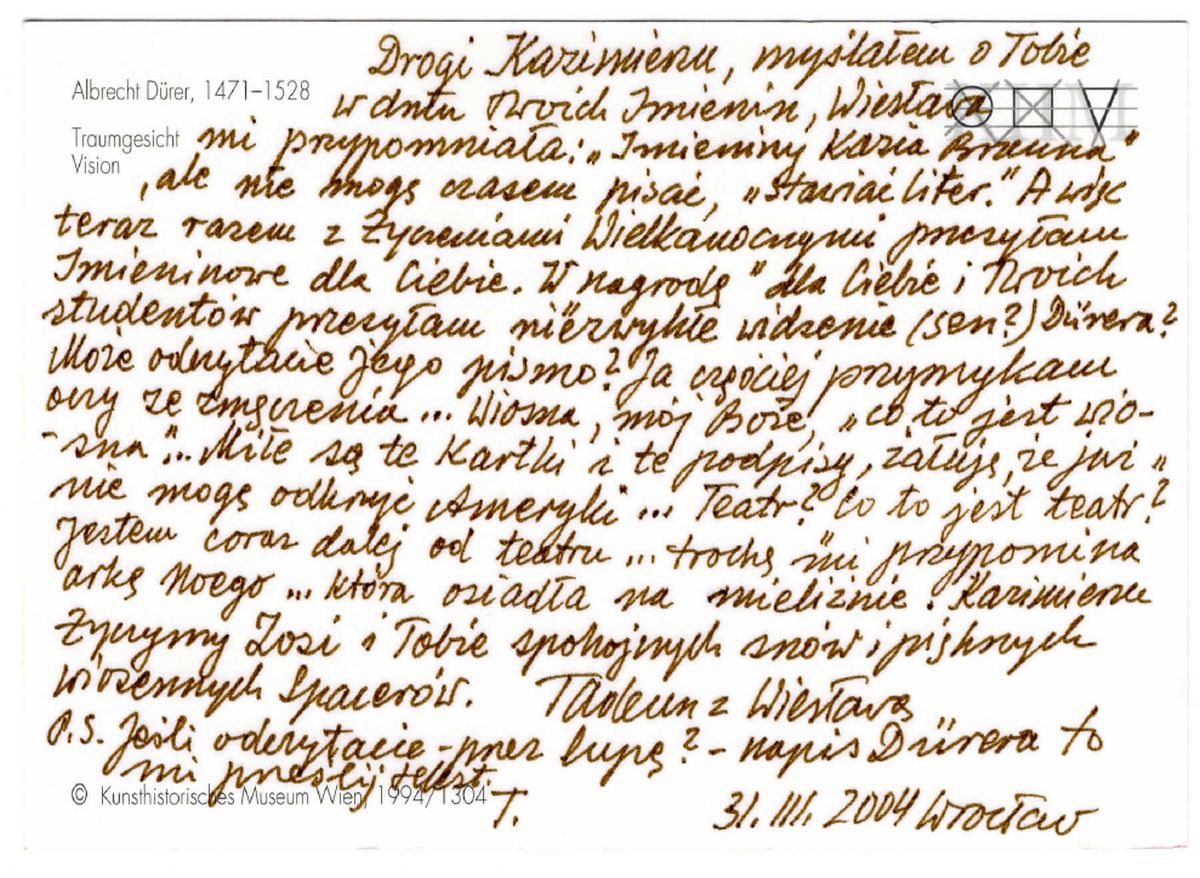 Drogi Kazimierzu, myślałem o Tobie
Albrecht Dürer, 1471–1528
w dniu Twoich Imienin, Wiesława
Traumgesicht
Vision
mi przypomniała: „Imieniny Kazia Brauna"
, ale nie mogę czasem pisać, „stawiać liter." A więc
teraz razem z Życzeniami Wielkanocnymi przesyłam
Imieninowe dla Ciebie. W nagrodę" dla Ciebie i Twoich
studentów przesyłam niezwykłe widzenie (sen?) Dürera?
Może odczytacie Jego pismo? Ja częściej przymykam
oczy ze zmęczenia ... Wiosna, mój Boże, „co to jest wio-
-sna"... Miłe są te Kartki i te podpisy, żałuję, że już „
nie mogę odkryć Ameryki"... Teatr? Co to jest teatr?
Jestem coraz dalej od teatru ... trochę mi przypomina
arkę Noego ... która osiadła na mieliźnie. Kazimierzu
Życzymy Zosi i Tobie spokojnych snów i pięknych
wiosennych spacerów. Tadeusz z Wiesławą
P.S. Jeśli odczytacie - przez lupę? - napis Dürera to
mi prześlij tekst.
© Kunsthistorisches Museum Wien, 1994/1304
T. 31. III. 2004 Wrocław